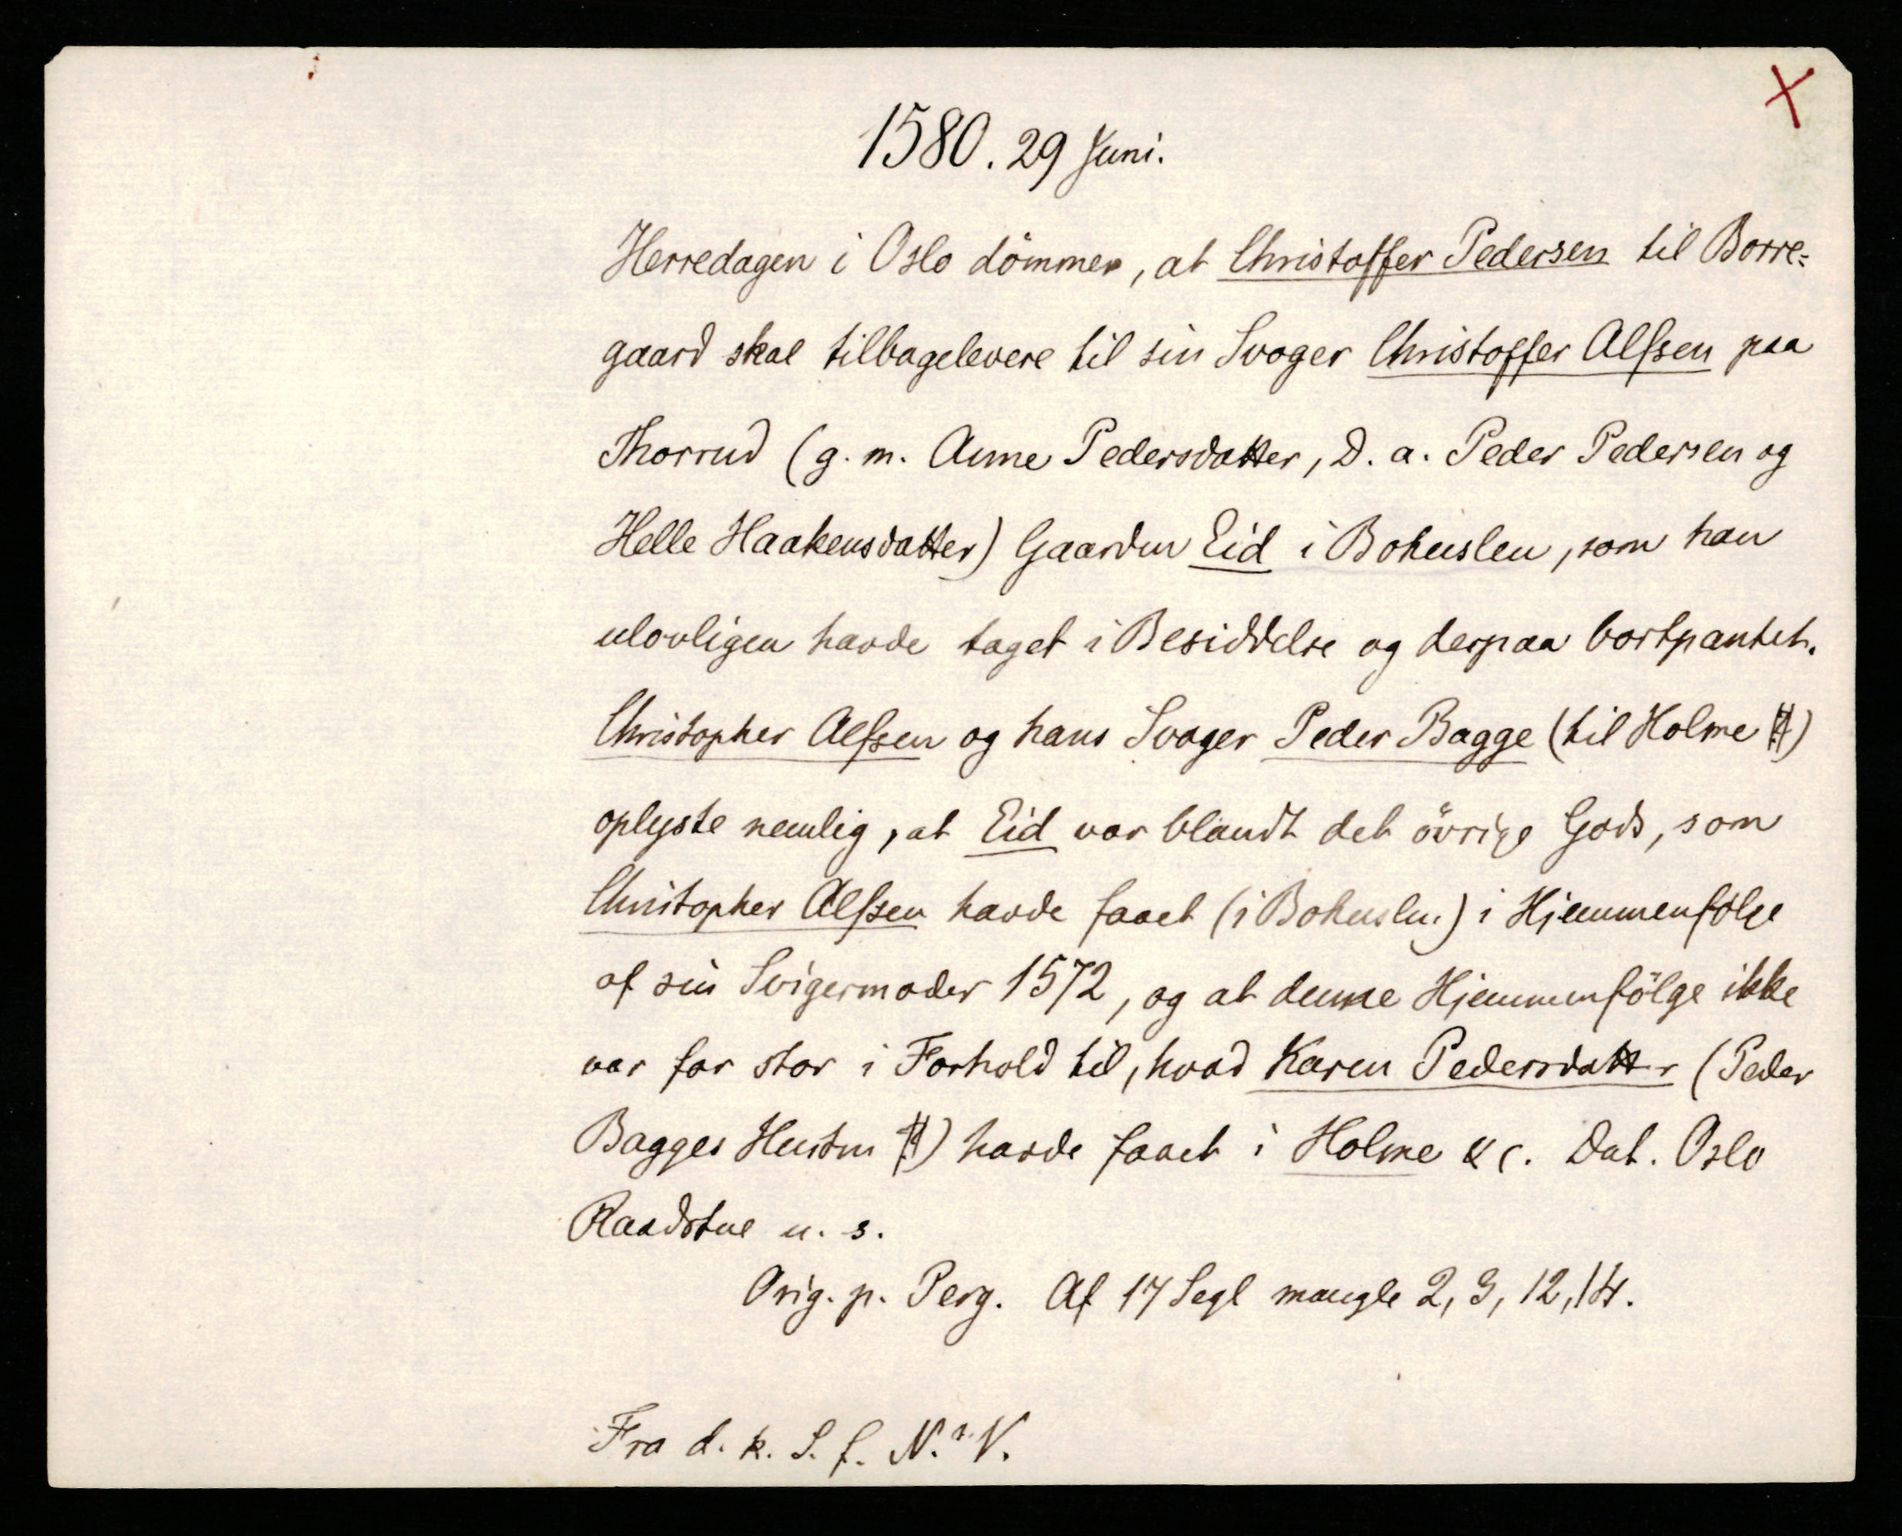 1580. 29 Juni.
Herredagen i Oslo dömmer, at Christoffer Pedersen til Borre-
gaard skal tilbagelevere til sin Svoger Christoffer Alfsen paa
Thorrud (g. m. Anne Pedersdatter, D. a. Peder Pedersen og
Helle Haakensdatter) Gaarden Eid i Bohuslen, som han
ulovligen havde taget i Besiddelse og derpaa bortpantet.
Christopher Alfsen og hans Svoger Peder Bagge (til Holme ⧺)
oplyste nemlig, at Eid var blandt det övrige Gods, som
Christopher Alfsen havde faaet (i Bohuslen.) i Hjemmenfölge
af sin Svigermoder 1572, og at denne Hjemmenfölge ikke
var for stor i Forhold til, hvad Karen Pedersdatter (Peder
Bagges Hustru ⧺) havde faaet i Holme &c. Dat. Oslo
Raadstue u. s.
Orig. p. Perg. Af 17 Segl mangle 2, 3, 12, 14.
Fra d. k. S. f. N. s. V.